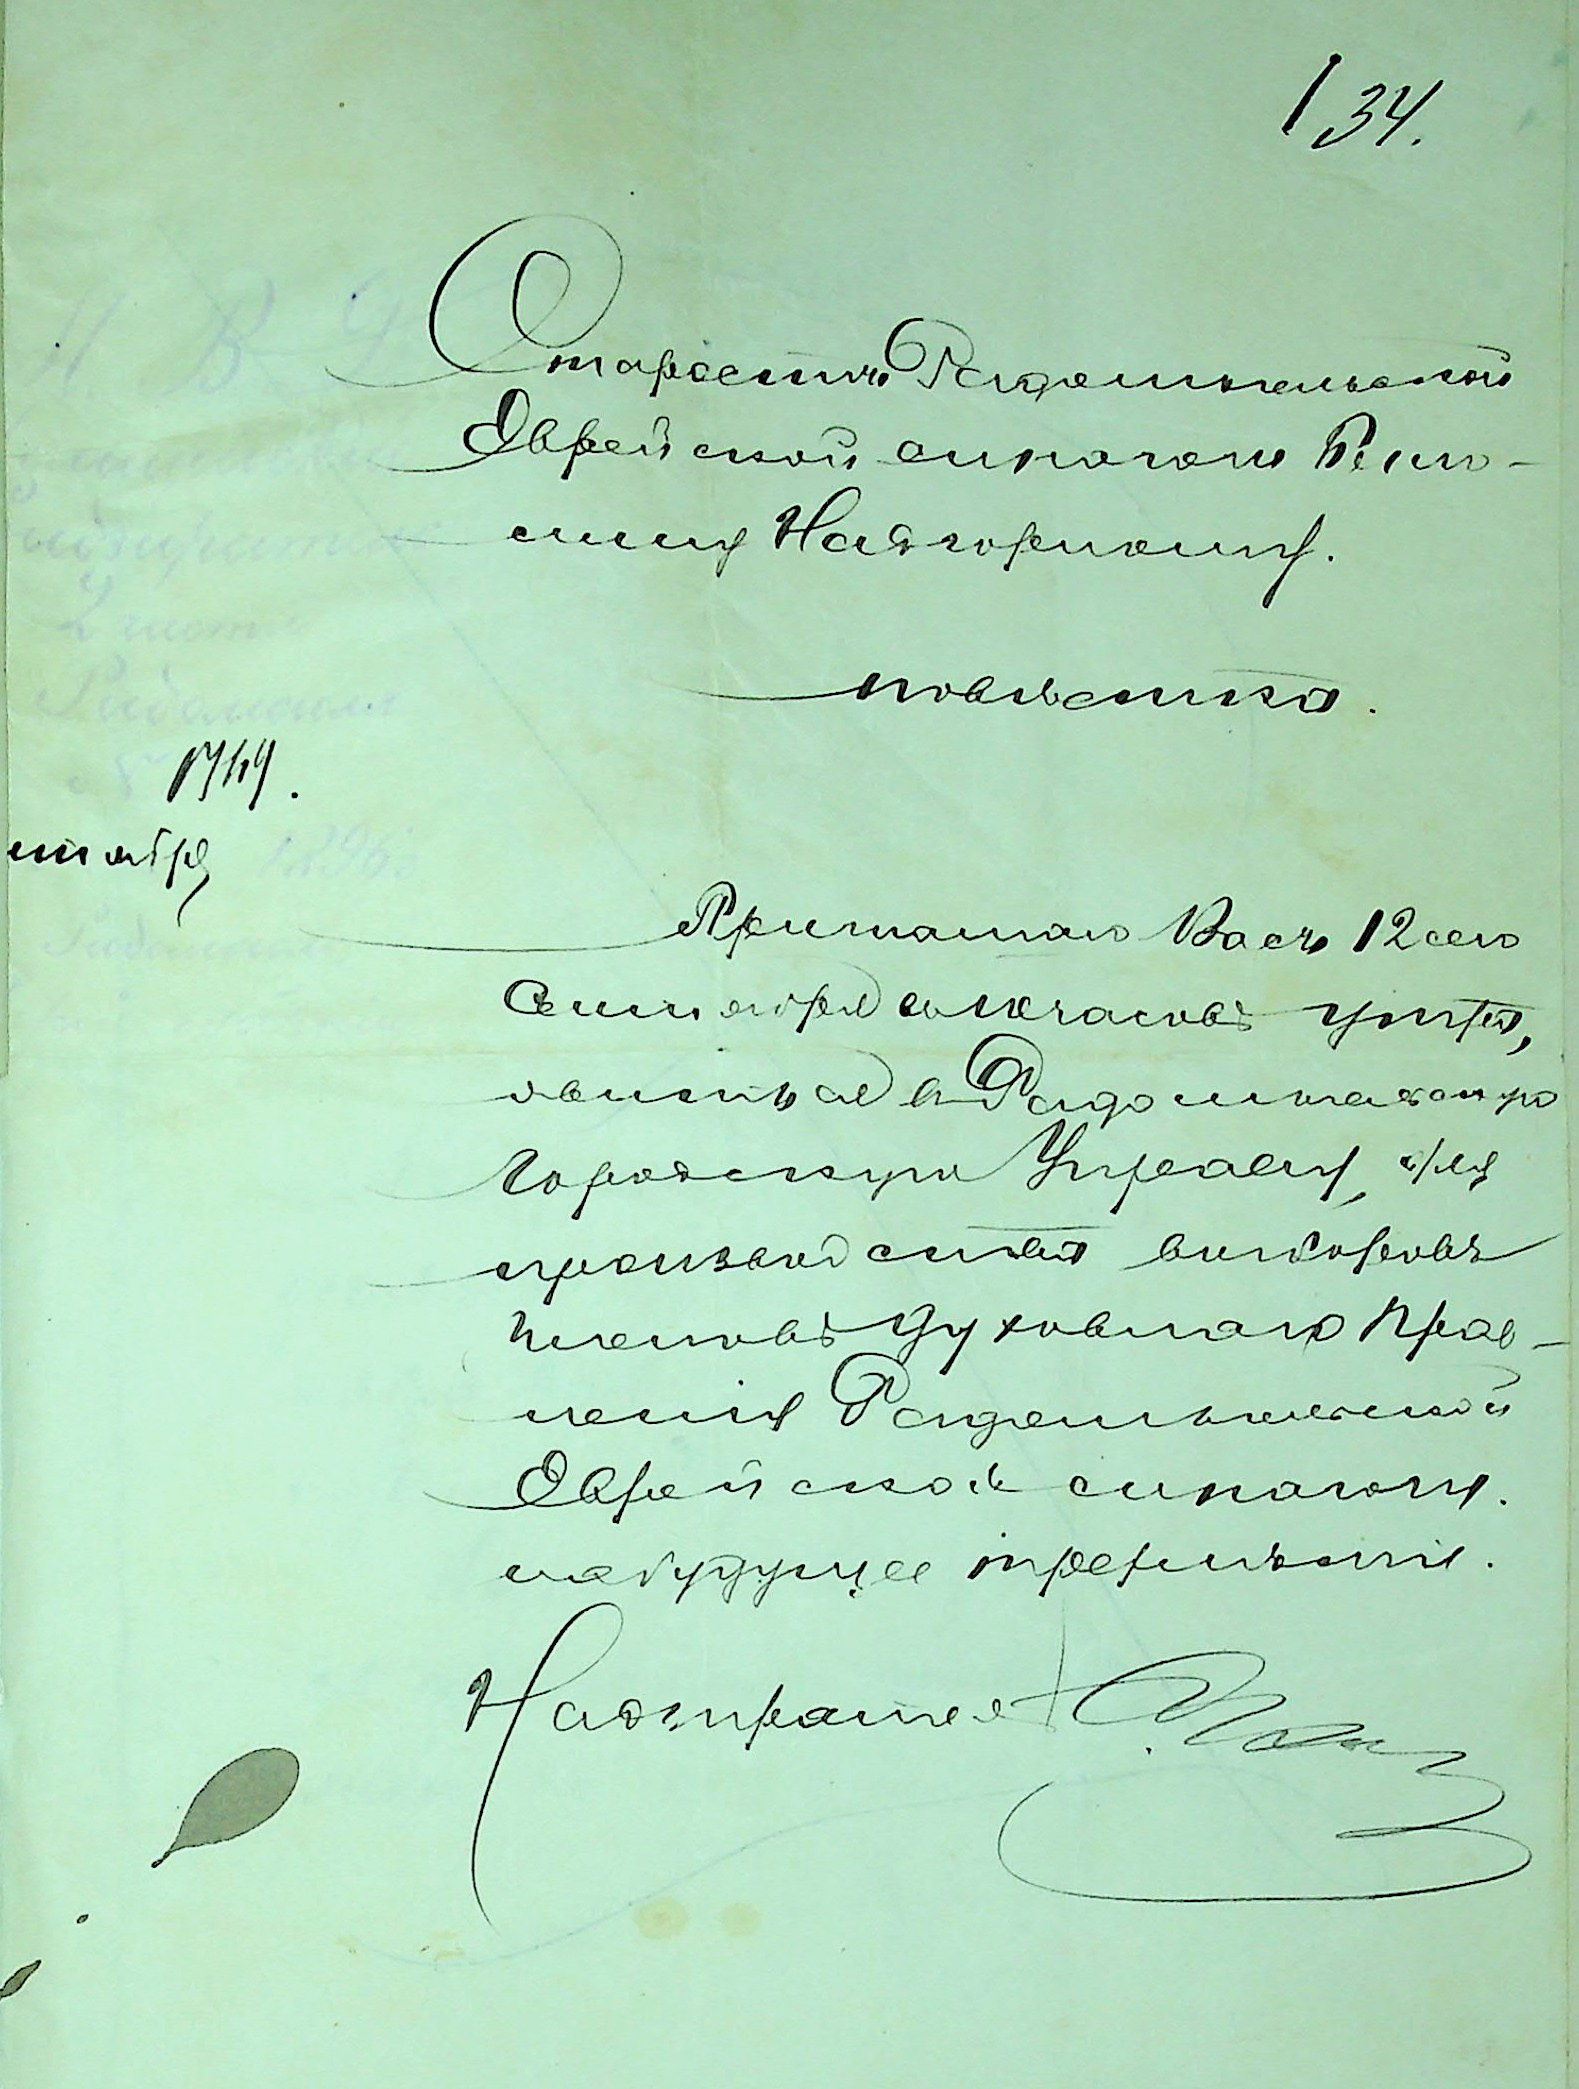 134.
Старостѣ Радомысльской
Еврейской синагоги
Нагорному.
повѣстка.
1744.
тября 1896.
Приглашаю Васъ 12 сего
Сентября часовъ утра,
явиться въ Радомысльскую
Городскую Управу, для
производства выборовъ
членовъ духовнаго прав-
ленія Радомысльской
Еврейской синагоги.
на будущее трехлѣтіе.
Надзиратель